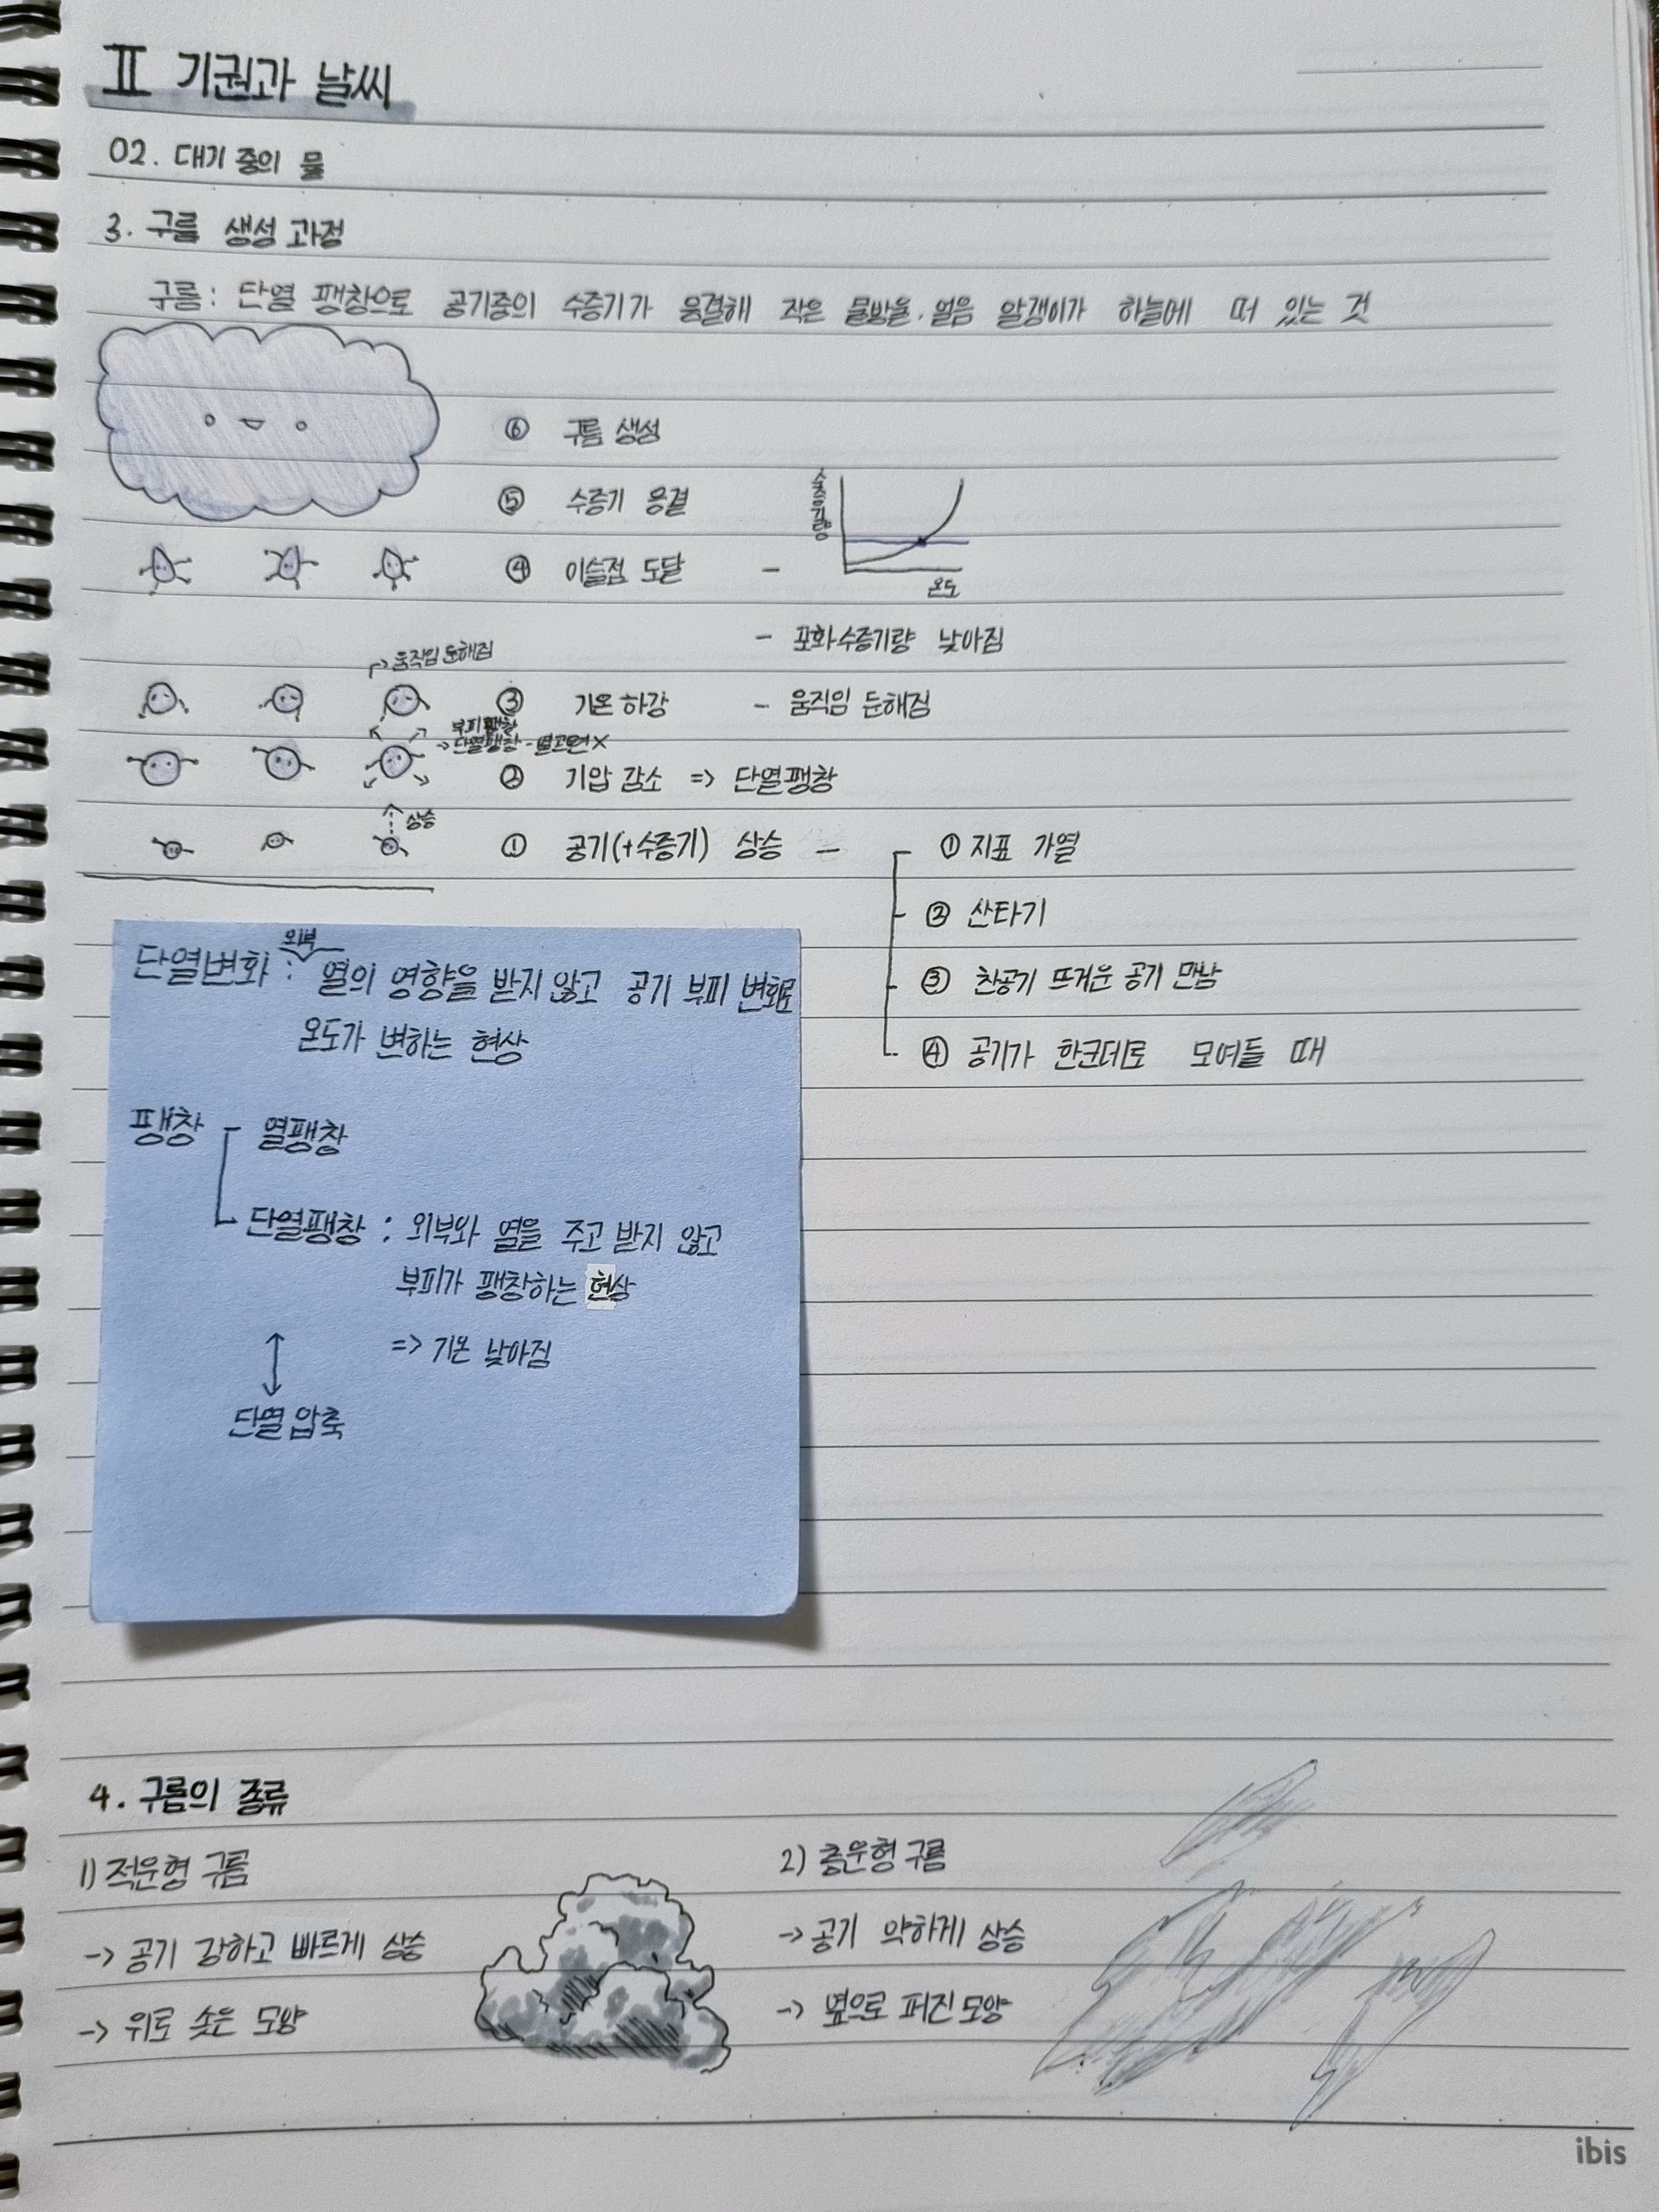 Ⅱ 기권과 날씨
02. 대기 중의 물
3. 구름 생성 과정
구름 : 단열 팽창으로 공기중의 수증기가 응결해 작은 물방울, 얼음 알갱이가 하늘에 떠 있는 것
⑥ 구름 생성
⑤ 수증기 응결
수증기량
온도
④ 이슬점 도달 -
- 포화수증기량 낮아짐
→ 움직임 둔해짐
③ 기온 하강 - 움직임 둔해짐
부피 팽창
→ 단열팽창 - 열교환 X
② 기압 감소 => 단열팽창
상승
① 공기(+수증기) 상승 - ① 지표 가열
② 산타기
③ 찬공기 뜨거운 공기 만남
④ 공기가 한곳데로 모여들 때
외부
단열변화 : 열의 영향을 받지 않고 공기 부피 변화로
온도가 변하는 현상
팽창 열팽창
단열팽창 : 외부와 열을 주고 받지 않고
부피가 팽창하는 현상
=> 기온 낮아짐
↕
단열 압축
4. 구름의 종류
1) 적운형 구름
-> 공기 강하고 빠르게 상승
-> 위로 솟은 모양
2) 층운형 구름
-> 공기 약하게 상승
-> 옆으로 퍼진 모양
ibis